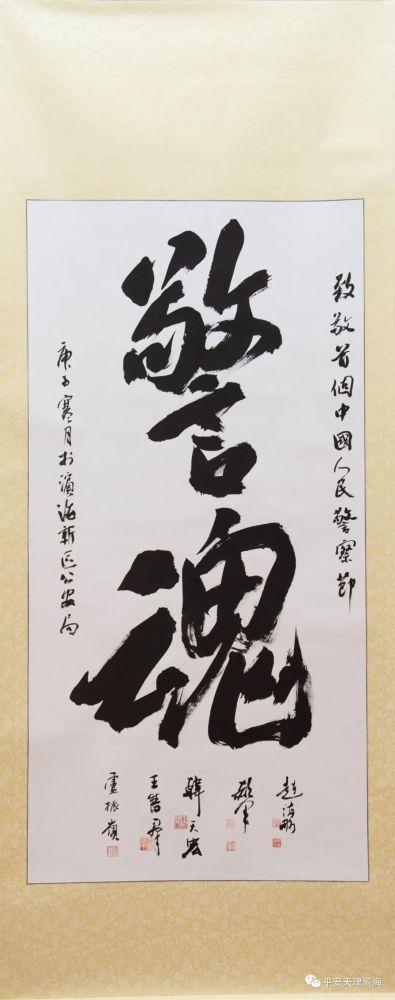 致敬首個中國人民警察節
警魂
庚子寒月於濱海新區公安局
韓天宏
王警群
盧振嶺
平安天津滨海